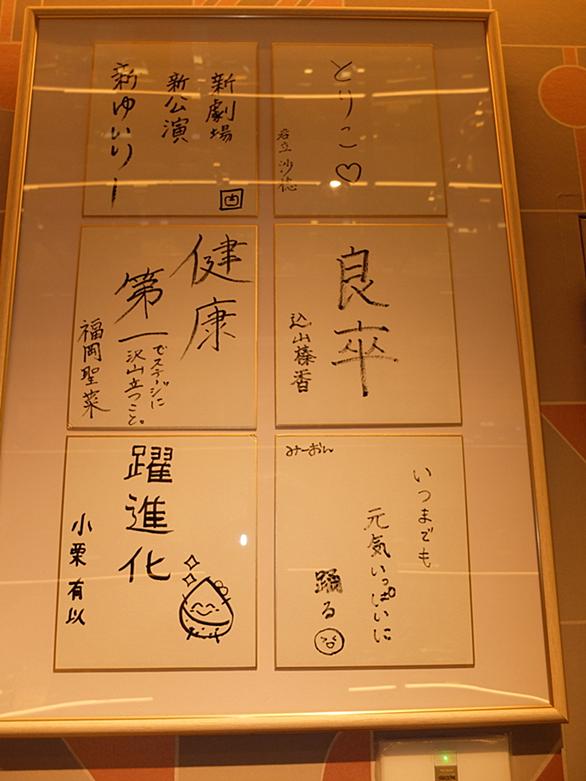 とりこ♡
岩立 沙穂
新劇場
新公演
新ゆいりー
良卒
込山榛香
健康
第一
でステージに
沢山立つこと。
福岡聖菜
いつまでも
元気いっぱいに
踊る
みーおん
躍進化
小栗有以